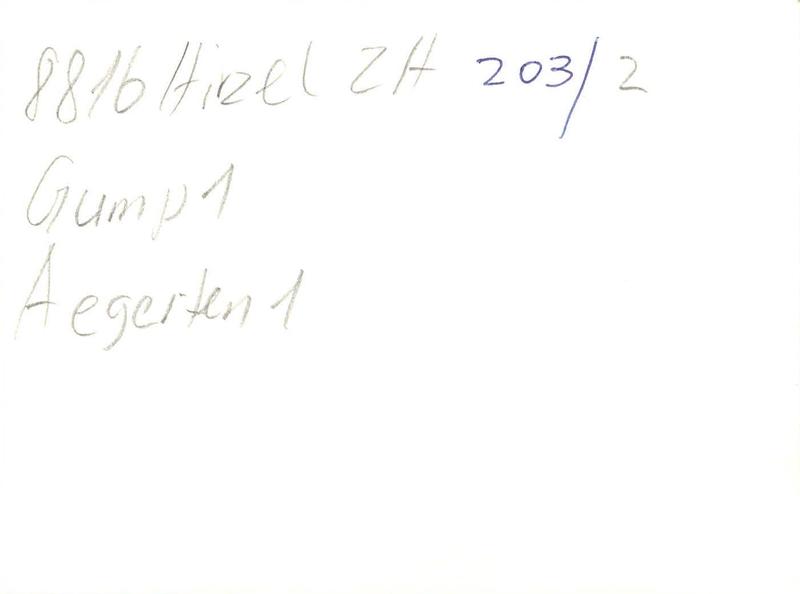 8816 Hirzel ZH 203/2
Gump 1
Aegerten 1